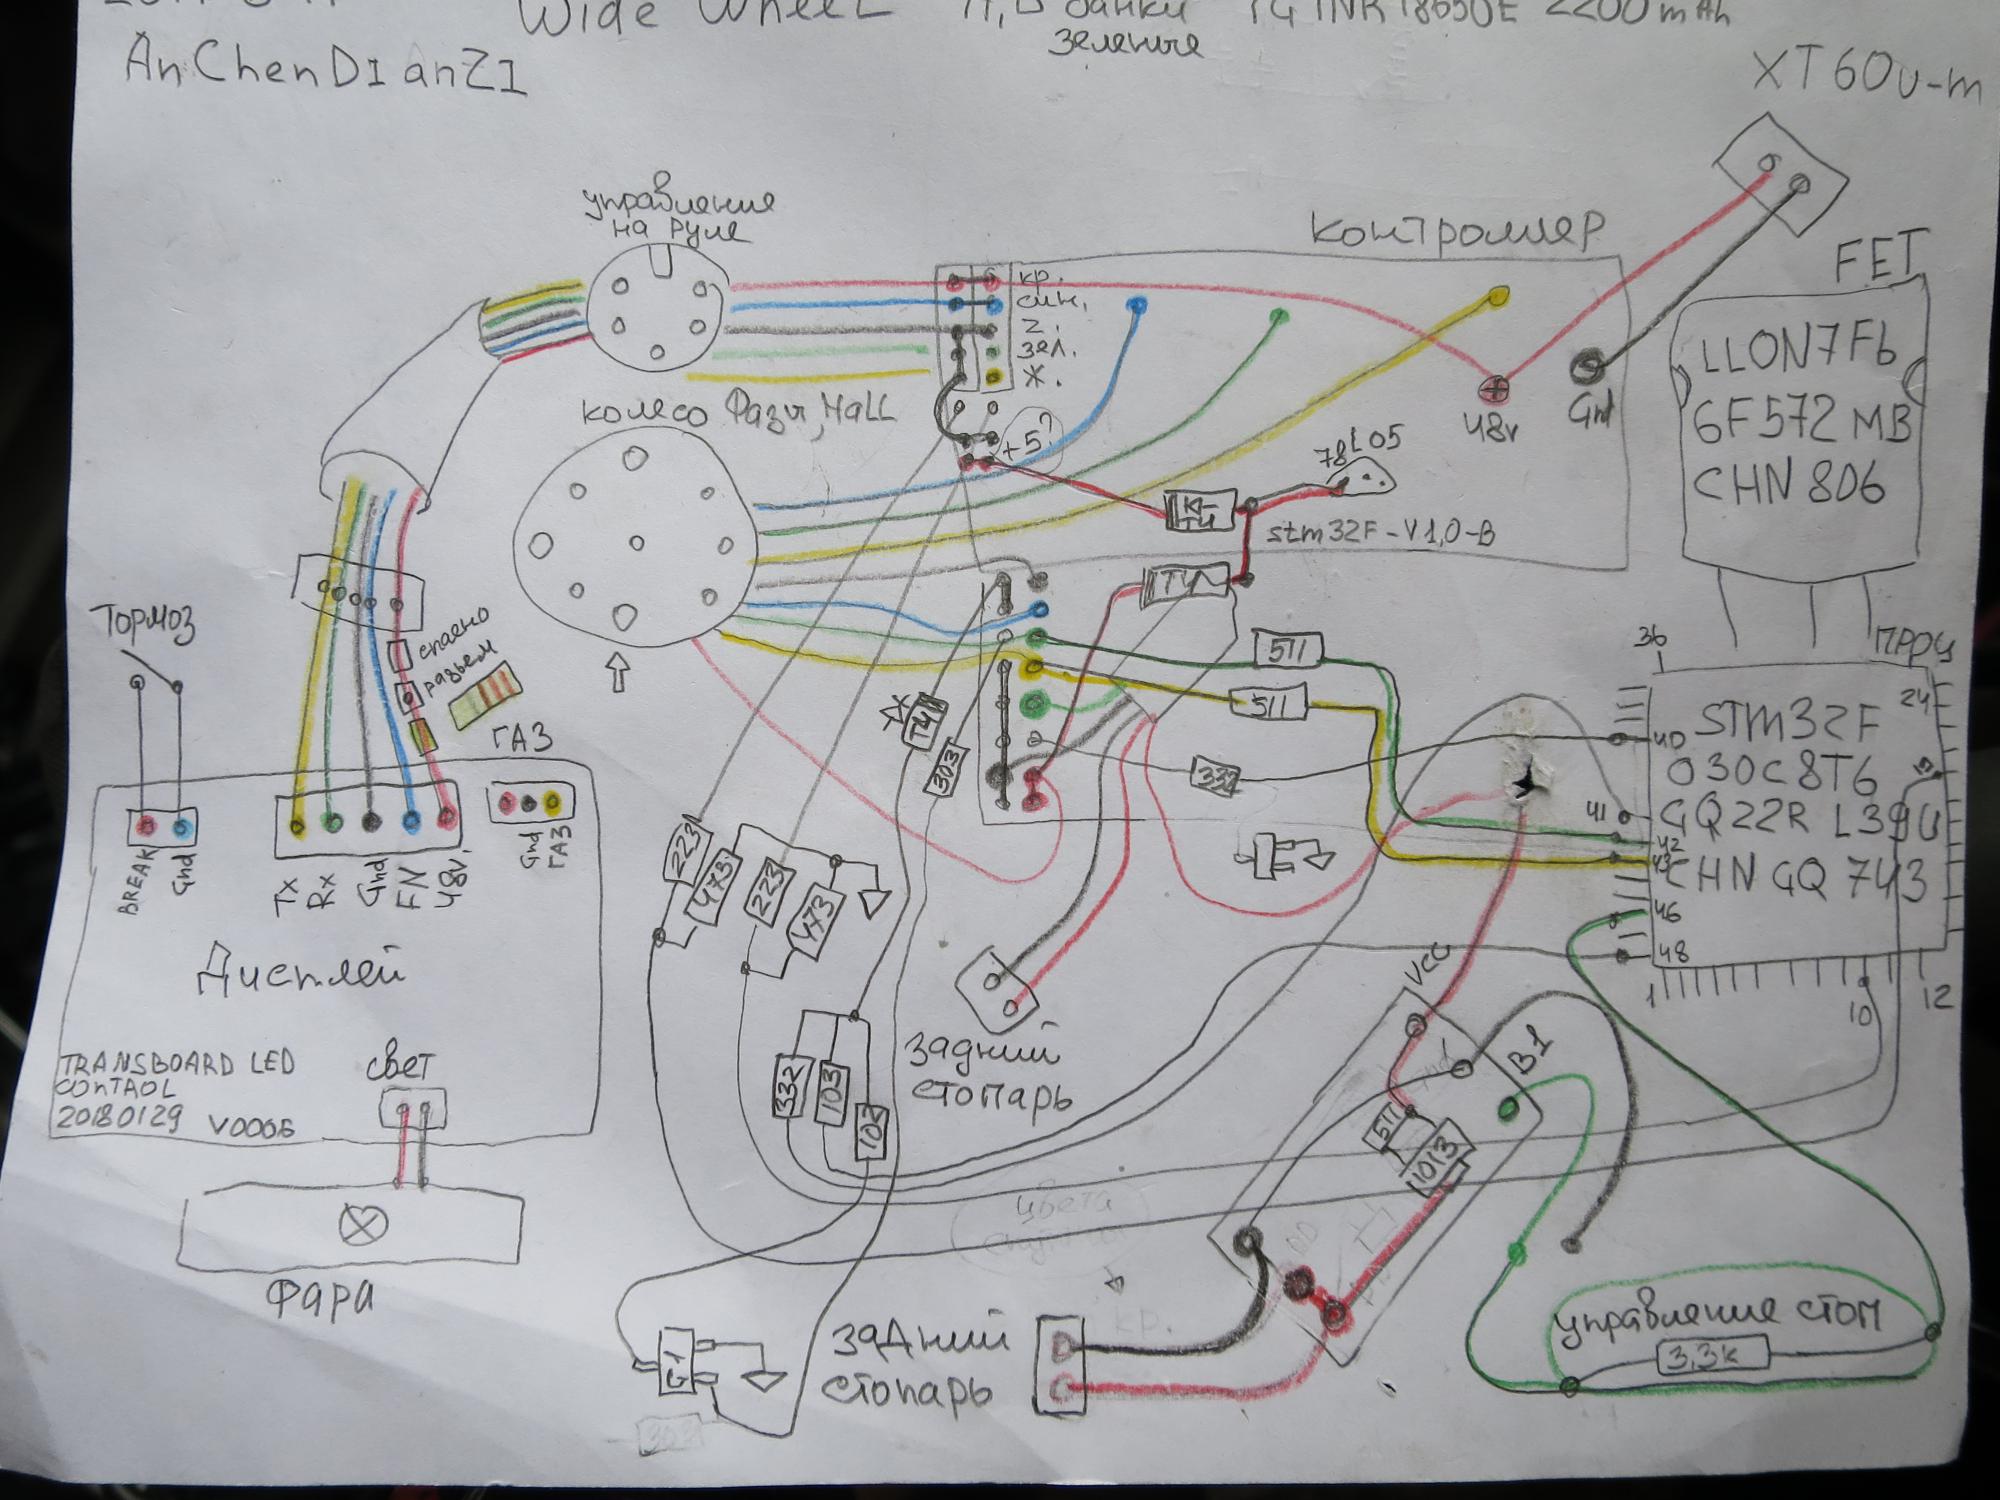 Wide Wheel
банки
INR18650E 2200mAh
зеленые
AnChenDIanZI
XT60u-m
управление
на руле
контроллер
FET
LLON7F6
6F572 MB
CHN 806
кр.
син.
зел.
ж.
колесо Фазы, HaLL
+5?
48v
Gnd
78L05
T4
stm32F-V1,0-B
T4
ТОРМОЗ
спаено
разъем
ГАЗ
511
511
36
24
STM32F
030C8T6
GQ22R L39U
CHN GQ 743
40
41
42
43
46
48
1
10
12
T4
303
332
BREAK
Gnd
Tx
Rx
Gnd
FN
48v.
Gnd
ГАЗ
223
473
223
473
Дисплей
VCC
B1
задний
стопарь
332
103
103
511
1013
TRANSBOARD LED
CONTAOL
20180129 V0006
свет
цвета
Фара
задний
стопарь
кр.
G1
303
управление стоп
3,3к